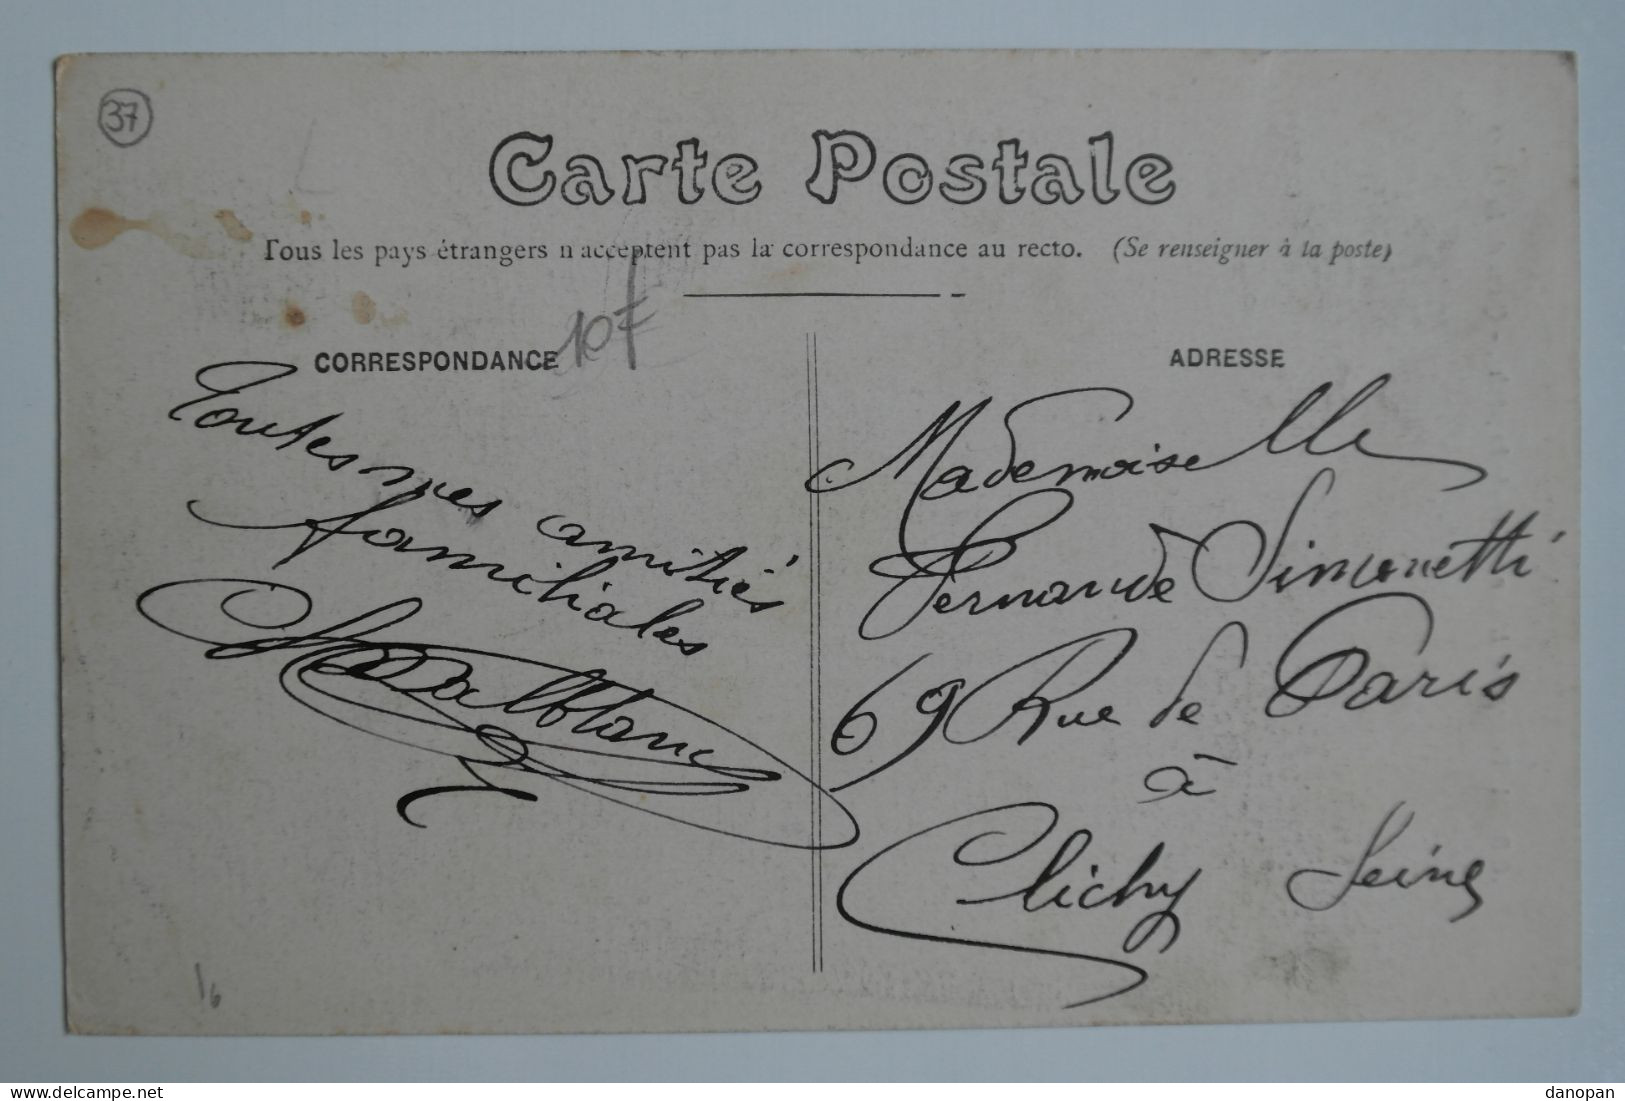 37
Carte Postale
Tous les pays étrangers n'acceptent pas la correspondance au recto. (Se renseigner à la poste)
10F
CORRESPONDANCE
Toutes mes amitiés
familiales
ADRESSE
Mademoiselle
Fernande Simonetti
69 Rue de Paris
à
Clichy Seine
delcampe.net
danopan